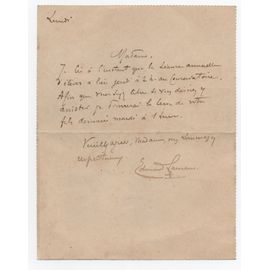 Lundi
Madame,
Je lis à l'instant que la séance annuelle
a lieu jeudi à 2 h. au Conservatoire.
Afin que vous soyez libre si vous désirez y
assister, je donnerai la leçon de votre
fils demain mardi à 1 heure.
Veuillez agréer, Madame, mes hommages
respectueux